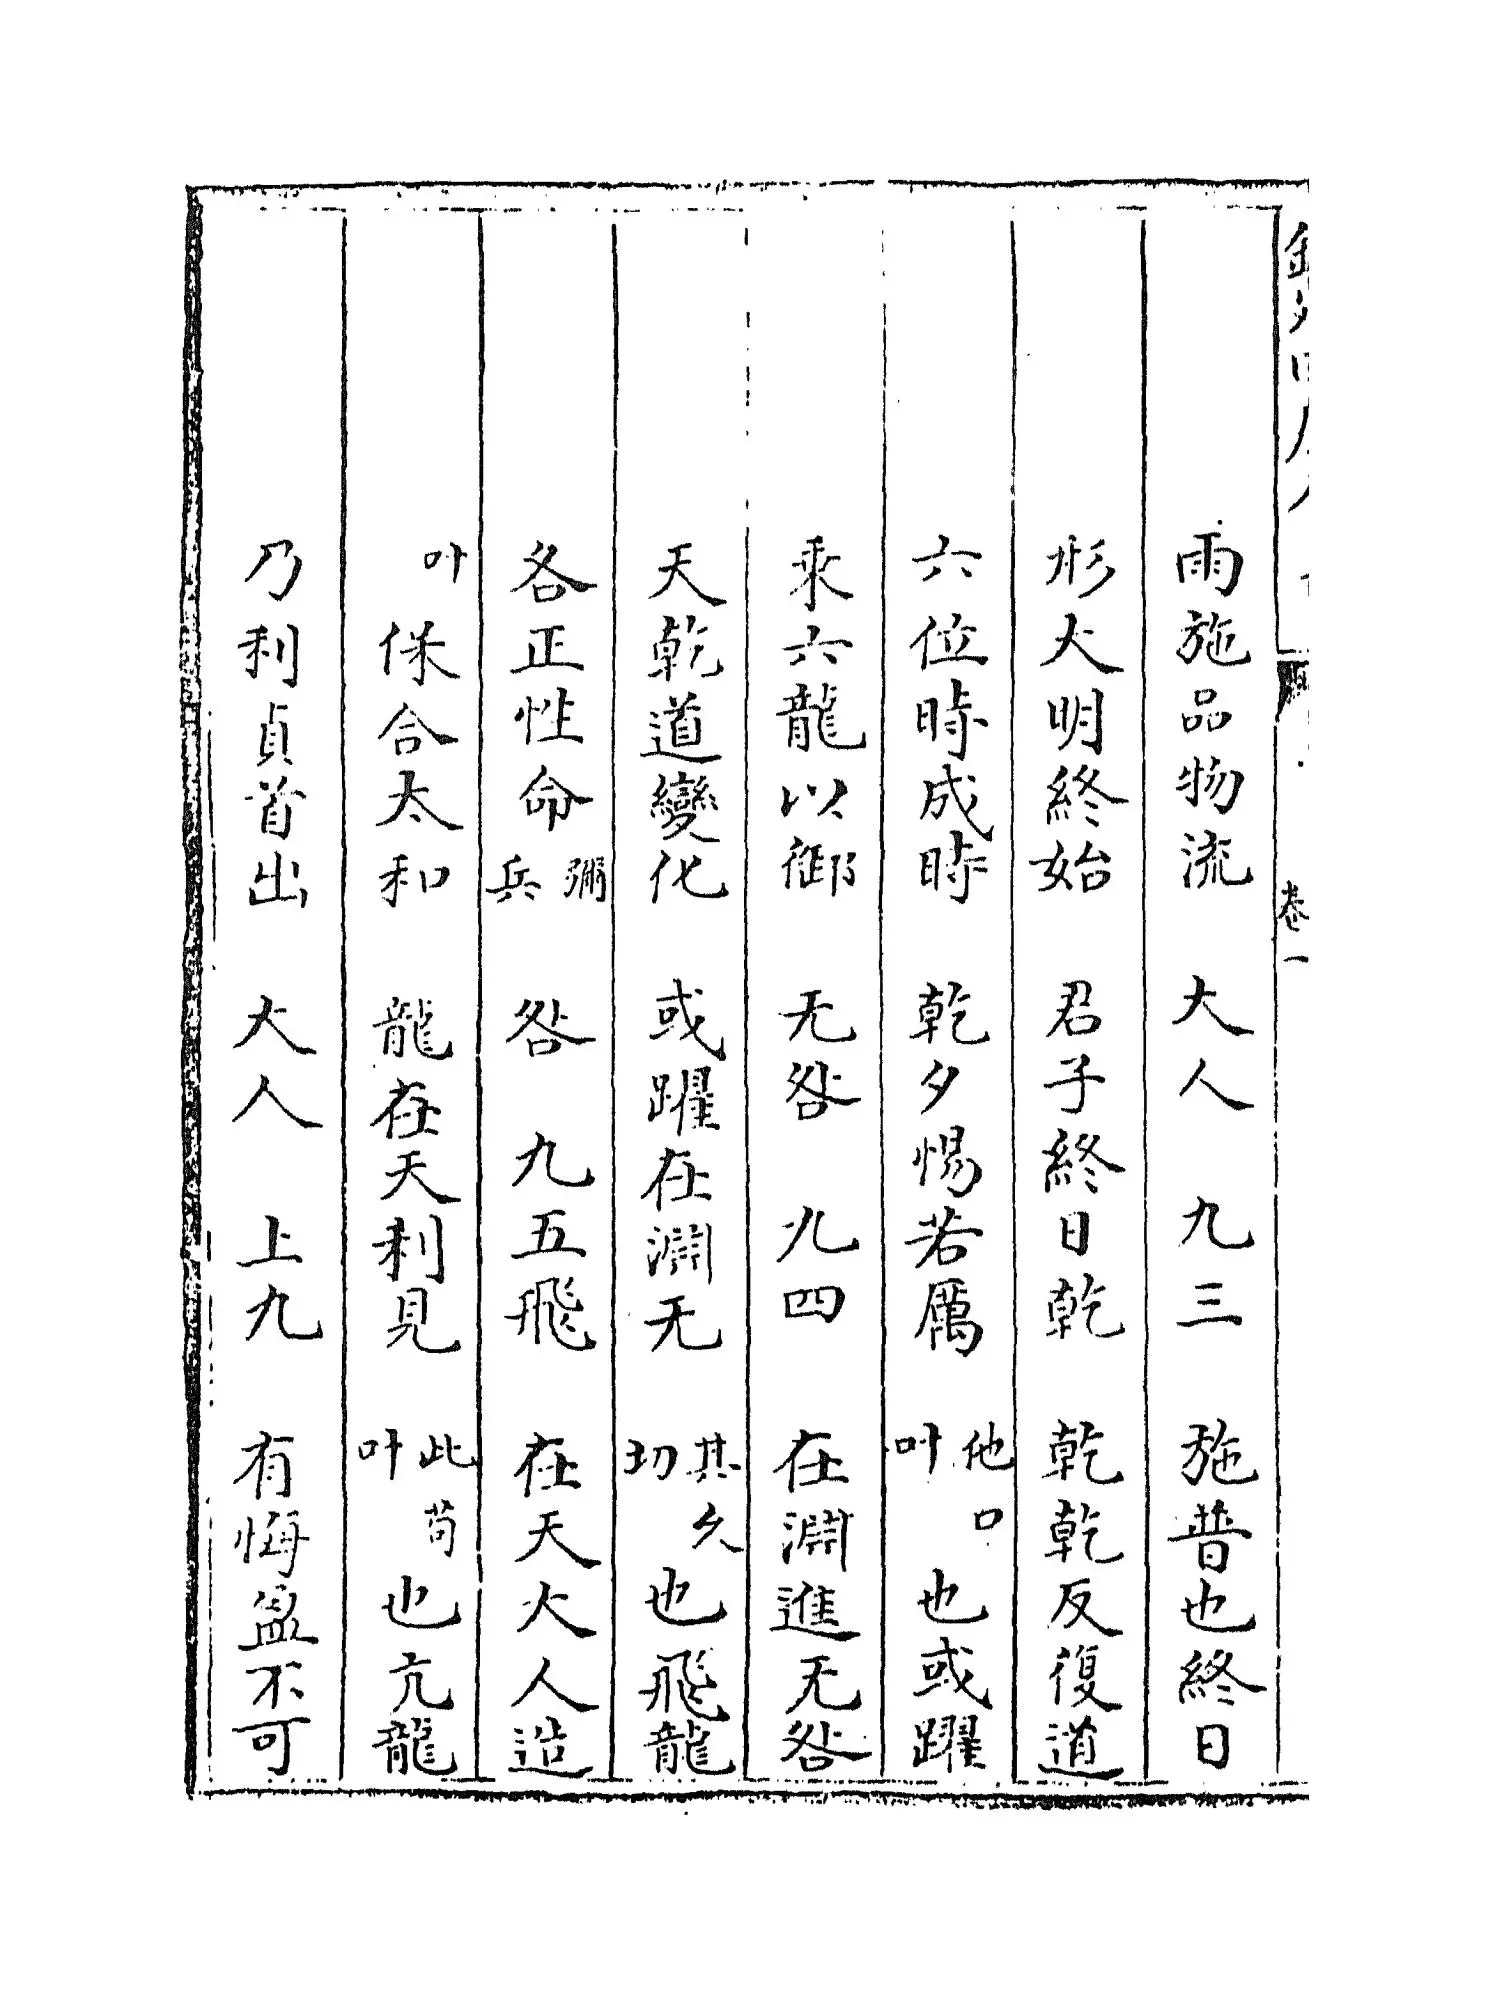 雨施品物流　大人　九三　施普也終日
形大明終始　君子終日乾　乾乾反復道
六位時成時　乾夕惕若厲　他口叶也或躍
乘六龍以御　无咎　九四　在淵進无咎
天乾道變化　或躍在淵无　其久切也飛龍
各正性命彌兵　咎　九五飛　在天大人造
叶保合太和　龍在天利見　此苟叶也亢龍
乃利貞首出　大人　上九　有悔盈不可
卷一